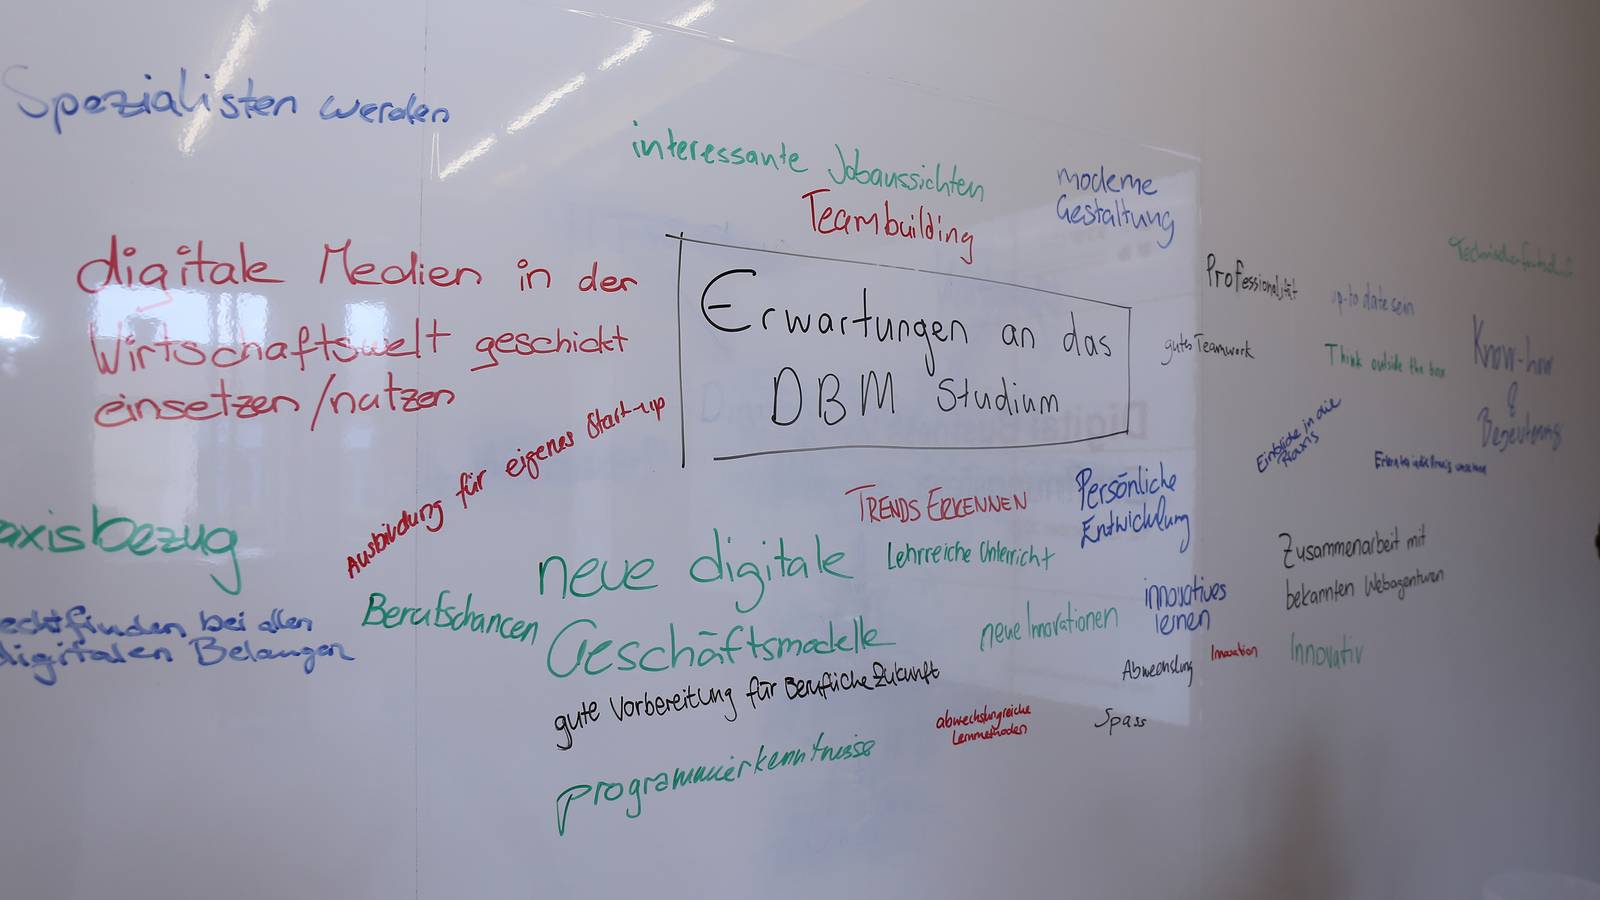 Spezialisten werden
interessante Jobaussichten
Teambuilding
moderne
Gestaltung
digitale Medien in der
Wirtschaftswelt geschickt
einsetzen/nutzen
Erwartungen an das
DBM Studium
Professionalität
up-to date sein
gutes Teamwork
Think outside the box
Know-how
&
Begeisterung
Einblicke in die
Praxis
Ausbildung für eigenes Start-up
TRENDS ERKENNEN
Persönliche
Entwicklung
axisbezug
neue digitale
Geschäftsmodelle
Lehrreiche Unterricht
Zusammenarbeit mit
bekannten Webagenturen
echtfinden bei allen
digitalen Belangen
Berufschancen
neue Innovationen
innovatives
lernen
Innovation
Innovativ
Abwechslung
gute Vorbereitung für Berufliche Zukunft
abwechslungsreiche
Lernmethoden
Spass
programmierkenntnisse